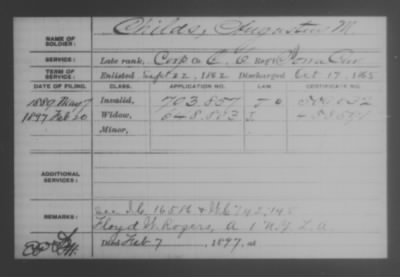 NAME OF SOLDIER: Childs, Augustus M.
SERVICE: Late rank, Corp Co. E, 6 Reg't Iowa Cav
TERM OF SERVICE: Enlisted Sept 22, 1862 Discharged Oct 17, 1865
DATE OF FILING. CLASS. APPLICATION NO. LAW. CERTIFICATE NO.
1889 May 7 Invalid, 703.857
1897 Feb 20 Widow, 648.883
Minor,
ADDITIONAL SERVICES:
REMARKS: See 16516 & 742,745
Floyd W. Rogers, A 1 N.Y. L.A.
Died Feb 7, 1897, at